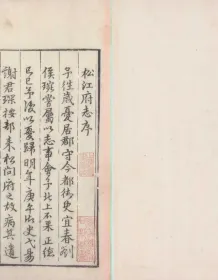 松江府志序
予往歲憂居郡守今都御史宜春劉
侯琬嘗屬以志事會予北上不果正德
己巳予復以憂歸明年庚午御史弋陽
謝君琛按部來松問府之故病其遺